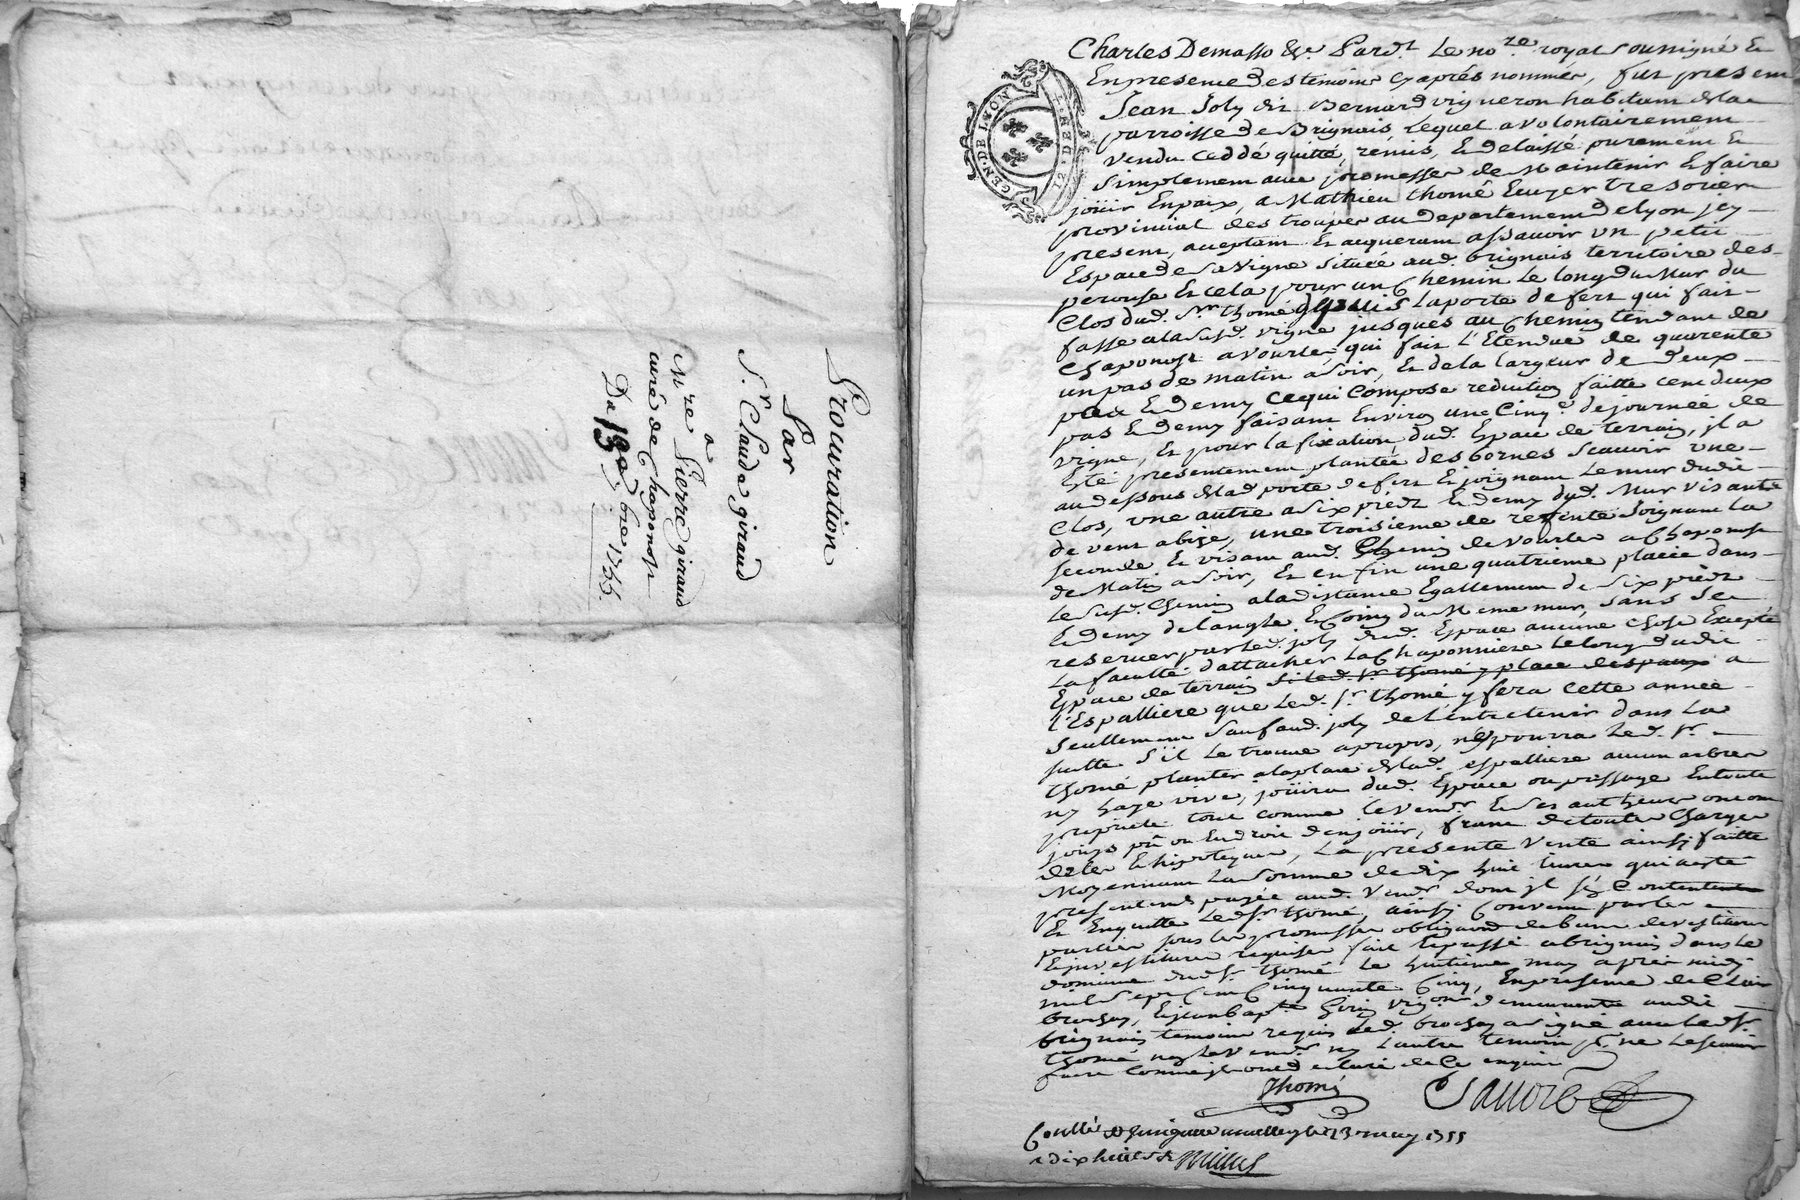 Procuration
Par
Sr. Claude giraud
a
Mre Pierre giraud
curé de Chaponost
Du 9bre 1755.
GEN. DE LYON
12. DEN
Charles Demasso &c. Pardt. Le nore royal soussigné Et
En presence des temoins cy aprés nommés, fut present
Jean Joly dit Bernard vigneron habitant de la
parroisse de Brignais, Lequel a volontairement
vendu ceddé quitté, remis, Et delaissé purement Et
simplement avec promesse de Maintenir Et faire
joüir En paix, a Mathieu thomé Ecuyer tresorier
provincial des trouppes au departement de lyon jcy
present, acceptant Et acquerant assavoir un petit
Espace de Sa Vigne située aud. brignais territoire des
perouse Et cela pour un Chemin Le long du Mur du
Clos dud. Sr. thomé depuis La porte de fert qui fait
fasse a la susd. vigne jusques au Chemin tendant de
Chaponost a vourles, qui fait L'Etendue de quarente
un pas de matin a soir, Et de la largeur de deux
pas Et demy ce qui Compose reduction faitte cent deux
pas Et demy faisant Environ une Cinqe. de journée de
vigne, Et pour la fixation dud. Espace de terrain, jl a
Eté presentement plantée des bornes scavoir une
au dessous de lad. porte de fert Et joignant Le mur dudit
Clos, une autre a six pieds Et demy dud. Mur visant
de vent a bize, une troisieme de refente joignant La
seconde Et visant aud. Chemin de vourles a Chaponost
de Matin a soir, Et en fin une quatrieme placée dans
Le susd. Chemin a la distance Egallement de six pieds
Et demy de l'angle Et Coing du Meme mur, sans se
reserver par led. joly dud. Espace aucune chose Excepté
La faculté d'attacher La Chaponniere Le long dudit
Espace de terrain si led. Sr. thomé y place des paux a
l'Espalliere que led. Sr. thomé y fera cette année
seullement sauf aud. joly de l'entretenir dans La
suitte s'il Le trouve a propos, ne pourra Led. Sr.
thomé planter a la place de lad. espalliere aucun arbre
ny haye vive, joüira dud. Espace ou passage En toute
proprieté tout comme le vendr. Et ses autheurs ont
joüys pû ou Eu droit d'en joüir, franc de toutes Charges
dettes Et hipoteques, La presente vente ainsy faitte
Moyennant La Somme de dix huit livres qui a eté
presentement payée aud. Vendr. dont jl se Contente
Et En quitte led. Sr. thomé, ainsy Convenu par les
parties sous les promesses obligaons. clauses de vestiture
Et investiture requises fait Et passé a brignais dans le
domaine dud. Sr. thomé Le huitieme may aprés midy
mil sept Cent Cinquante Cinq, En presence de Clair
brochay, Et jean bapte. Vigneron demeurants audit
brignais temoins requis led. brochay a signé avec led. Sr.
thomé non le vendr. ny L'autre temoin pr. ne le scavoir
faire comme jls ont declaré de Ce enquis
Thomé
Sanore
Conllé a le 13 may 1755
a dix huit s.